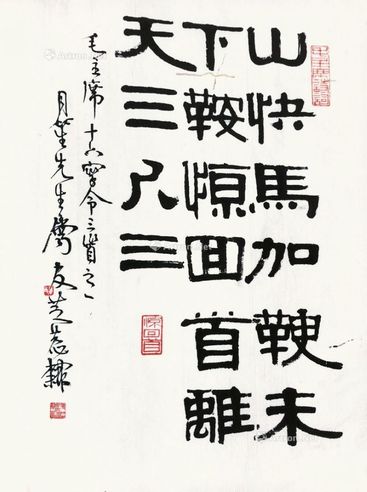 山快馬加鞭未
下鞍惊回首離
天三尺三
毛主席十六字令三首之一
月笙先生屬